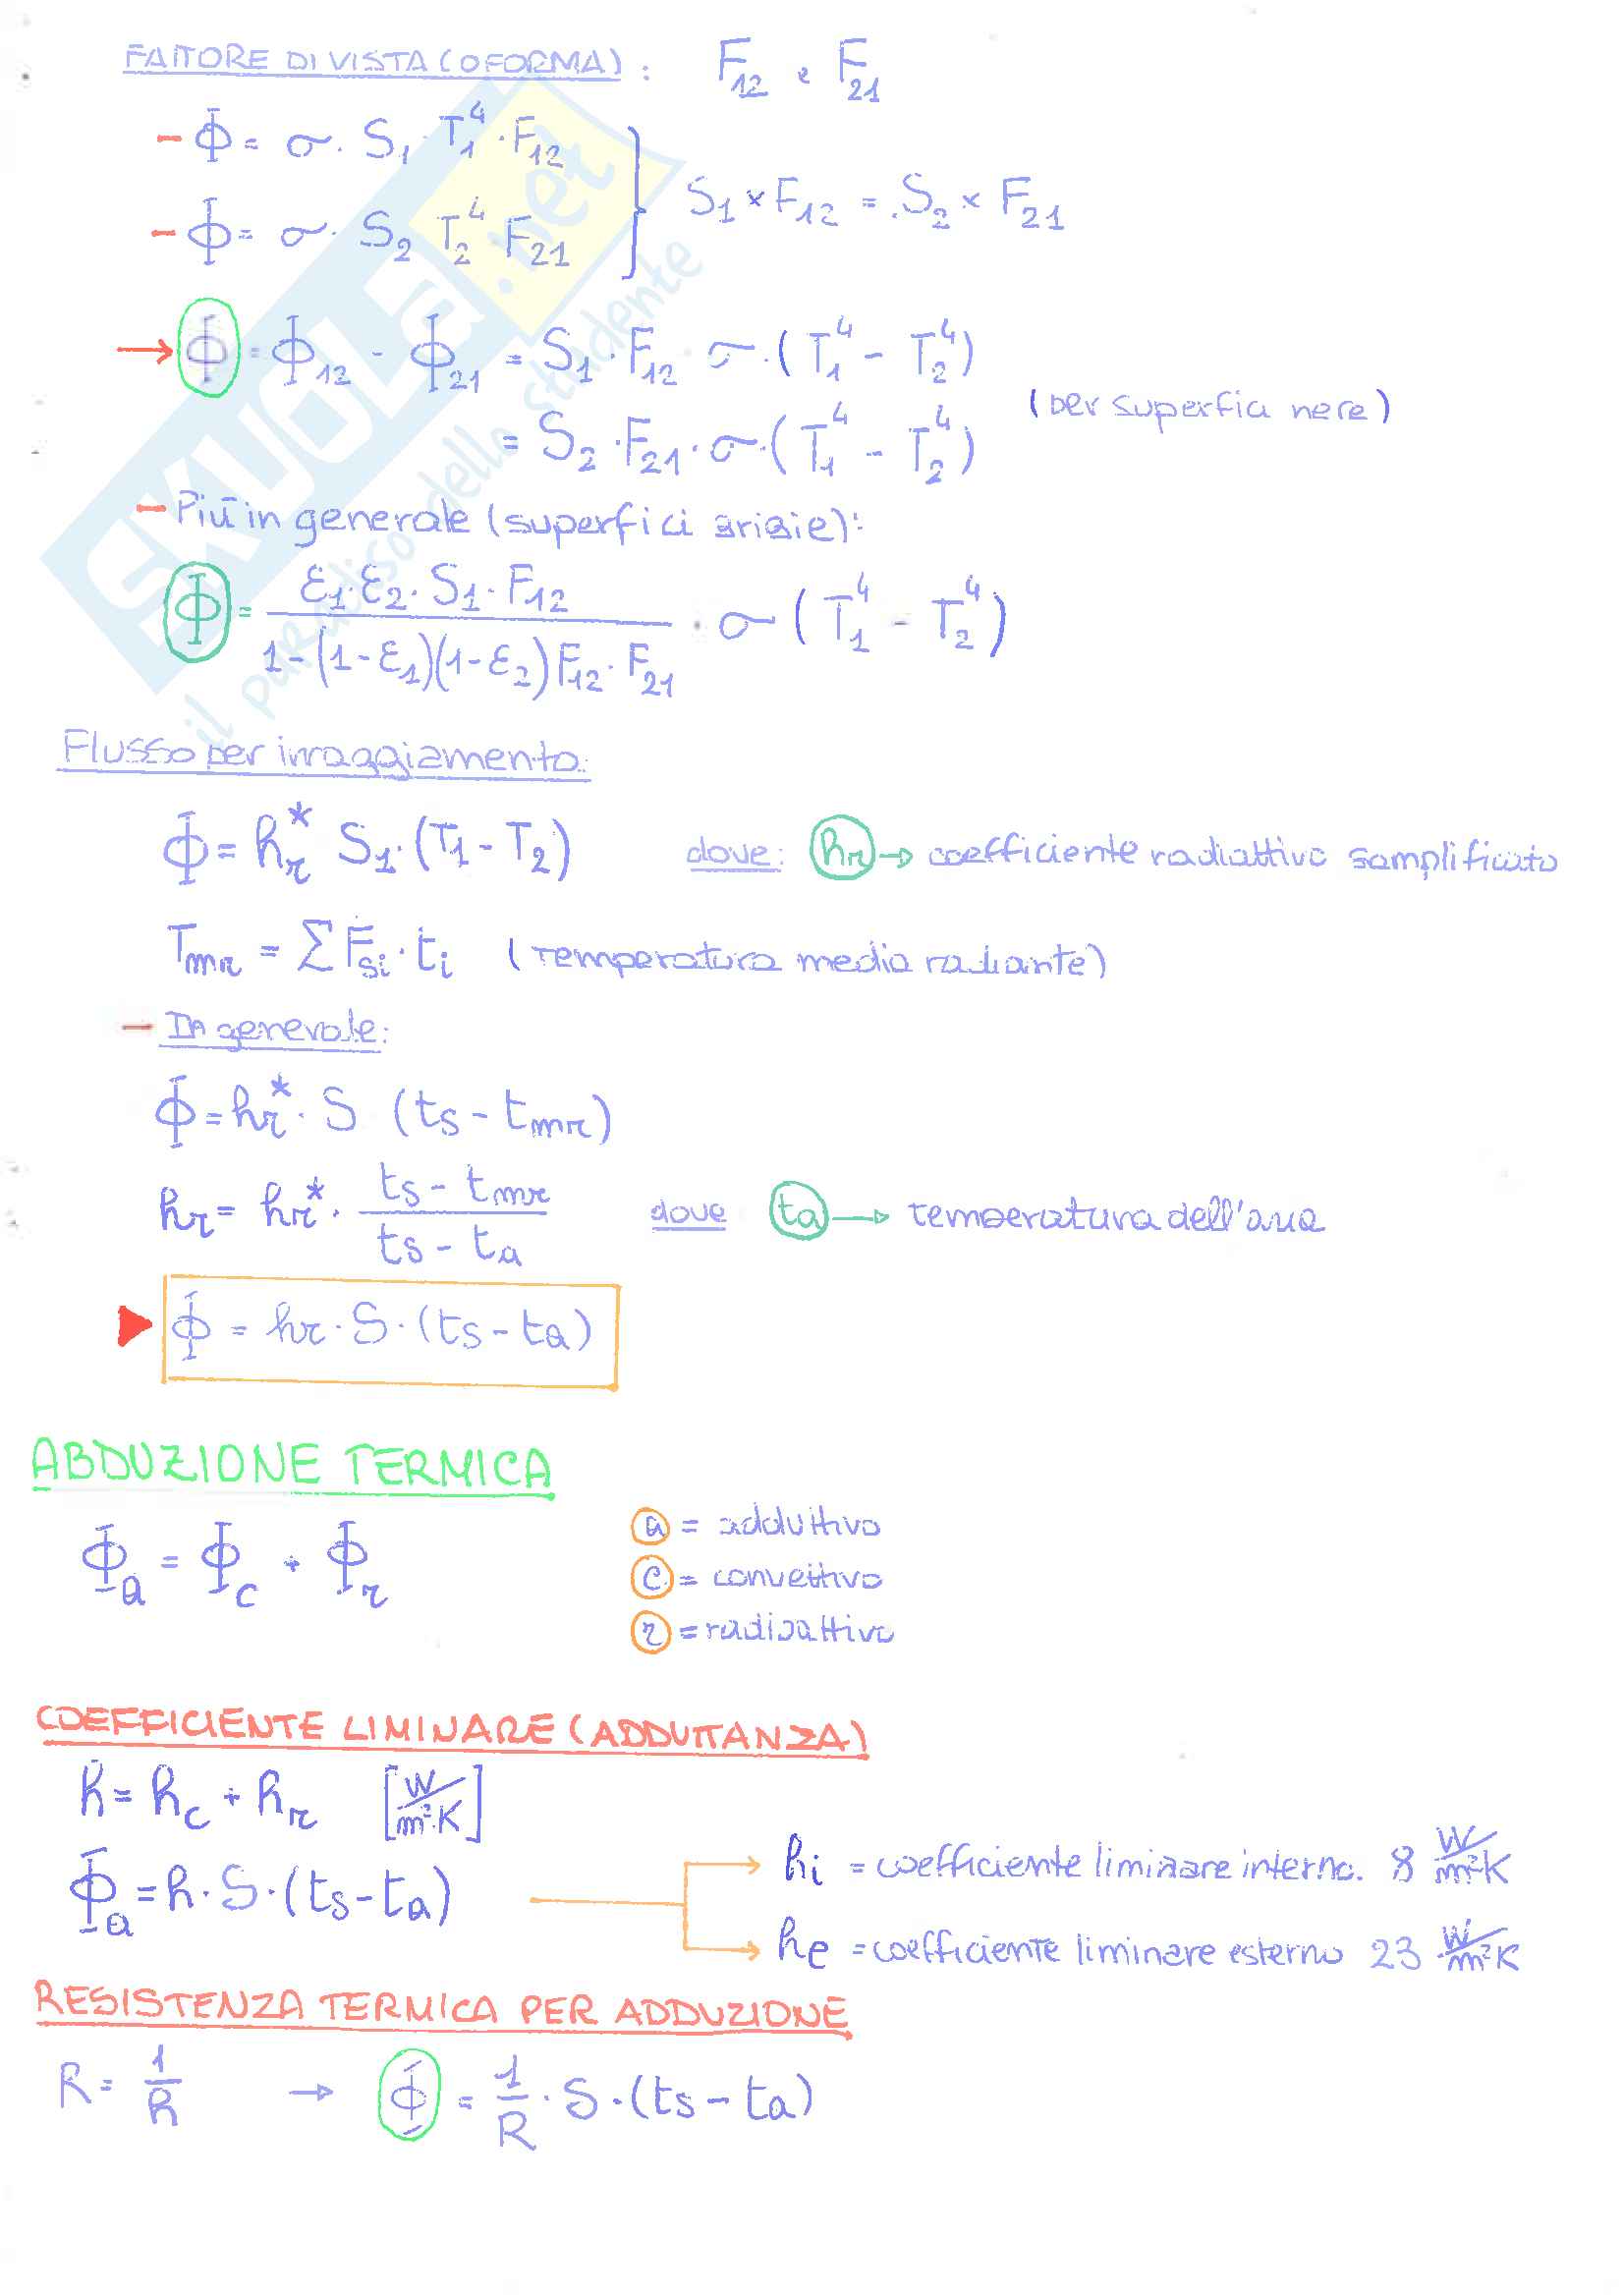 FATTORE DI VISTA (O FORMA) : F₁₂ e F₂₁
- Φ = σ · S₁ · T₁⁴ · F₁₂
- Φ = σ · S₂ T₂⁴ F₂₁
S₁ × F₁₂ = S₂ × F₂₁
→ Φ = Φ₁₂ - Φ₂₁ = S₁ · F₁₂ σ · (T₁⁴ - T₂⁴)
= S₂ · F₂₁ · σ · (T₁⁴ - T₂⁴)
(per superfici nere)
- Più in generale (superfici grigie):
Φ = ε₁ · ε₂ · S₁ · F₁₂ / 1 - (1 - ε₁)(1 - ε₂) F₁₂ · F₂₁ · σ (T₁⁴ - T₂⁴)
Flusso per irraggiamento:
Φ = hr* S₁ · (T₁ - T₂) dove: hr → coefficiente radiattivo samplificato
Tmr = Σ Fsi · ti (temperatura media radiante)
- In generale:
Φ = hr* · S (ts - tmr)
hr = hr* · ts - tmr / ts - ta dove ta → temperatura dell'aria
▶ Φ = hr · S · (ts - ta)
ABDUZIONE TERMICA
Φa = Φc + Φr
a = adduttivo
c = convettivo
r = radioattivo
COEFFICIENTE LIMINARE (ADDUTTANZA)
h = hc + hr [W/m²·K]
Φa = h · S · (ts - ta)
hi = coefficiente liminare interno. 8 W/m²K
he = coefficiente liminare esterno 23 W/m²K
RESISTENZA TERMICA PER ADDUZIONE
R = 1/h → Φ = 1/R · S · (ts - ta)
SKUOLA.net
il paradiso dello studente